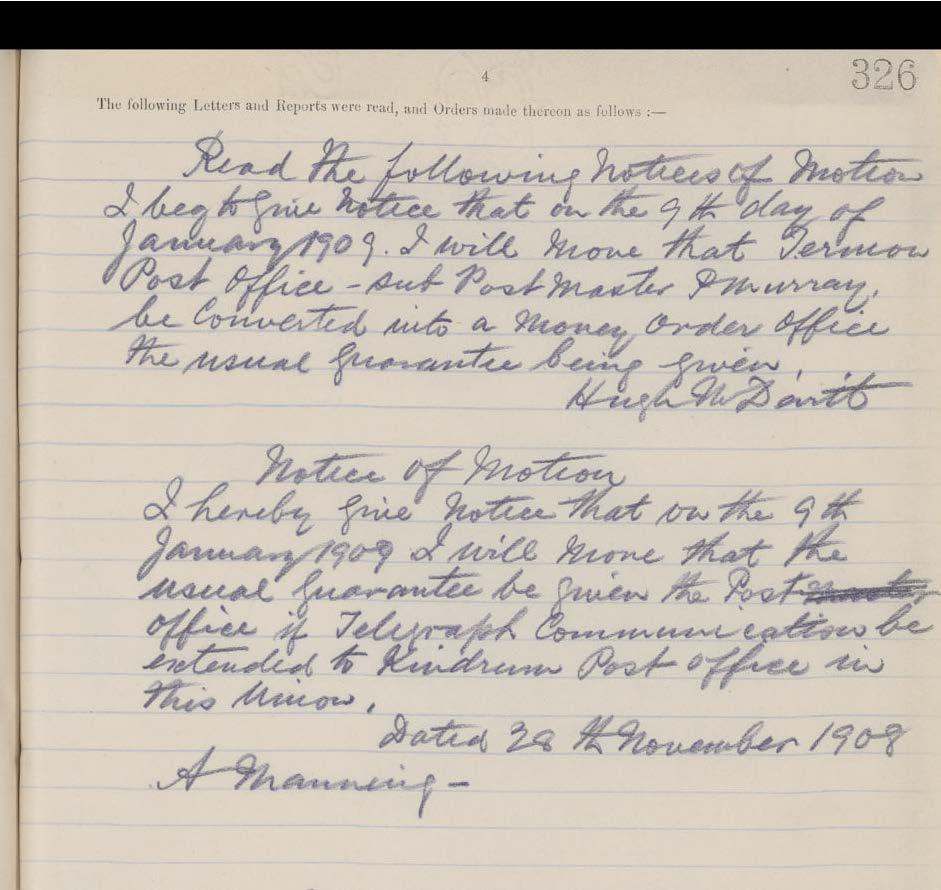 4
326
The following Letters and Reports were read, and Orders made thereon as follows :—
Read the following Notices of Motion
I beg to give Notice that on the 9th day of
January 1909. I will move that Termon
Post Office - sub Post Master P Murray,
be Converted into a Money Order Office
the usual Guarantee being given,
Hugh McDevitt
Notice of Motion
I hereby give Notice that on the 9th
January 1909 I will move that the
usual Guarantee be given the Post
Office if Telegraph Communication be
extended to Kindrum Post Office in
this Union,
Dated 28th November 1908
A Manning -